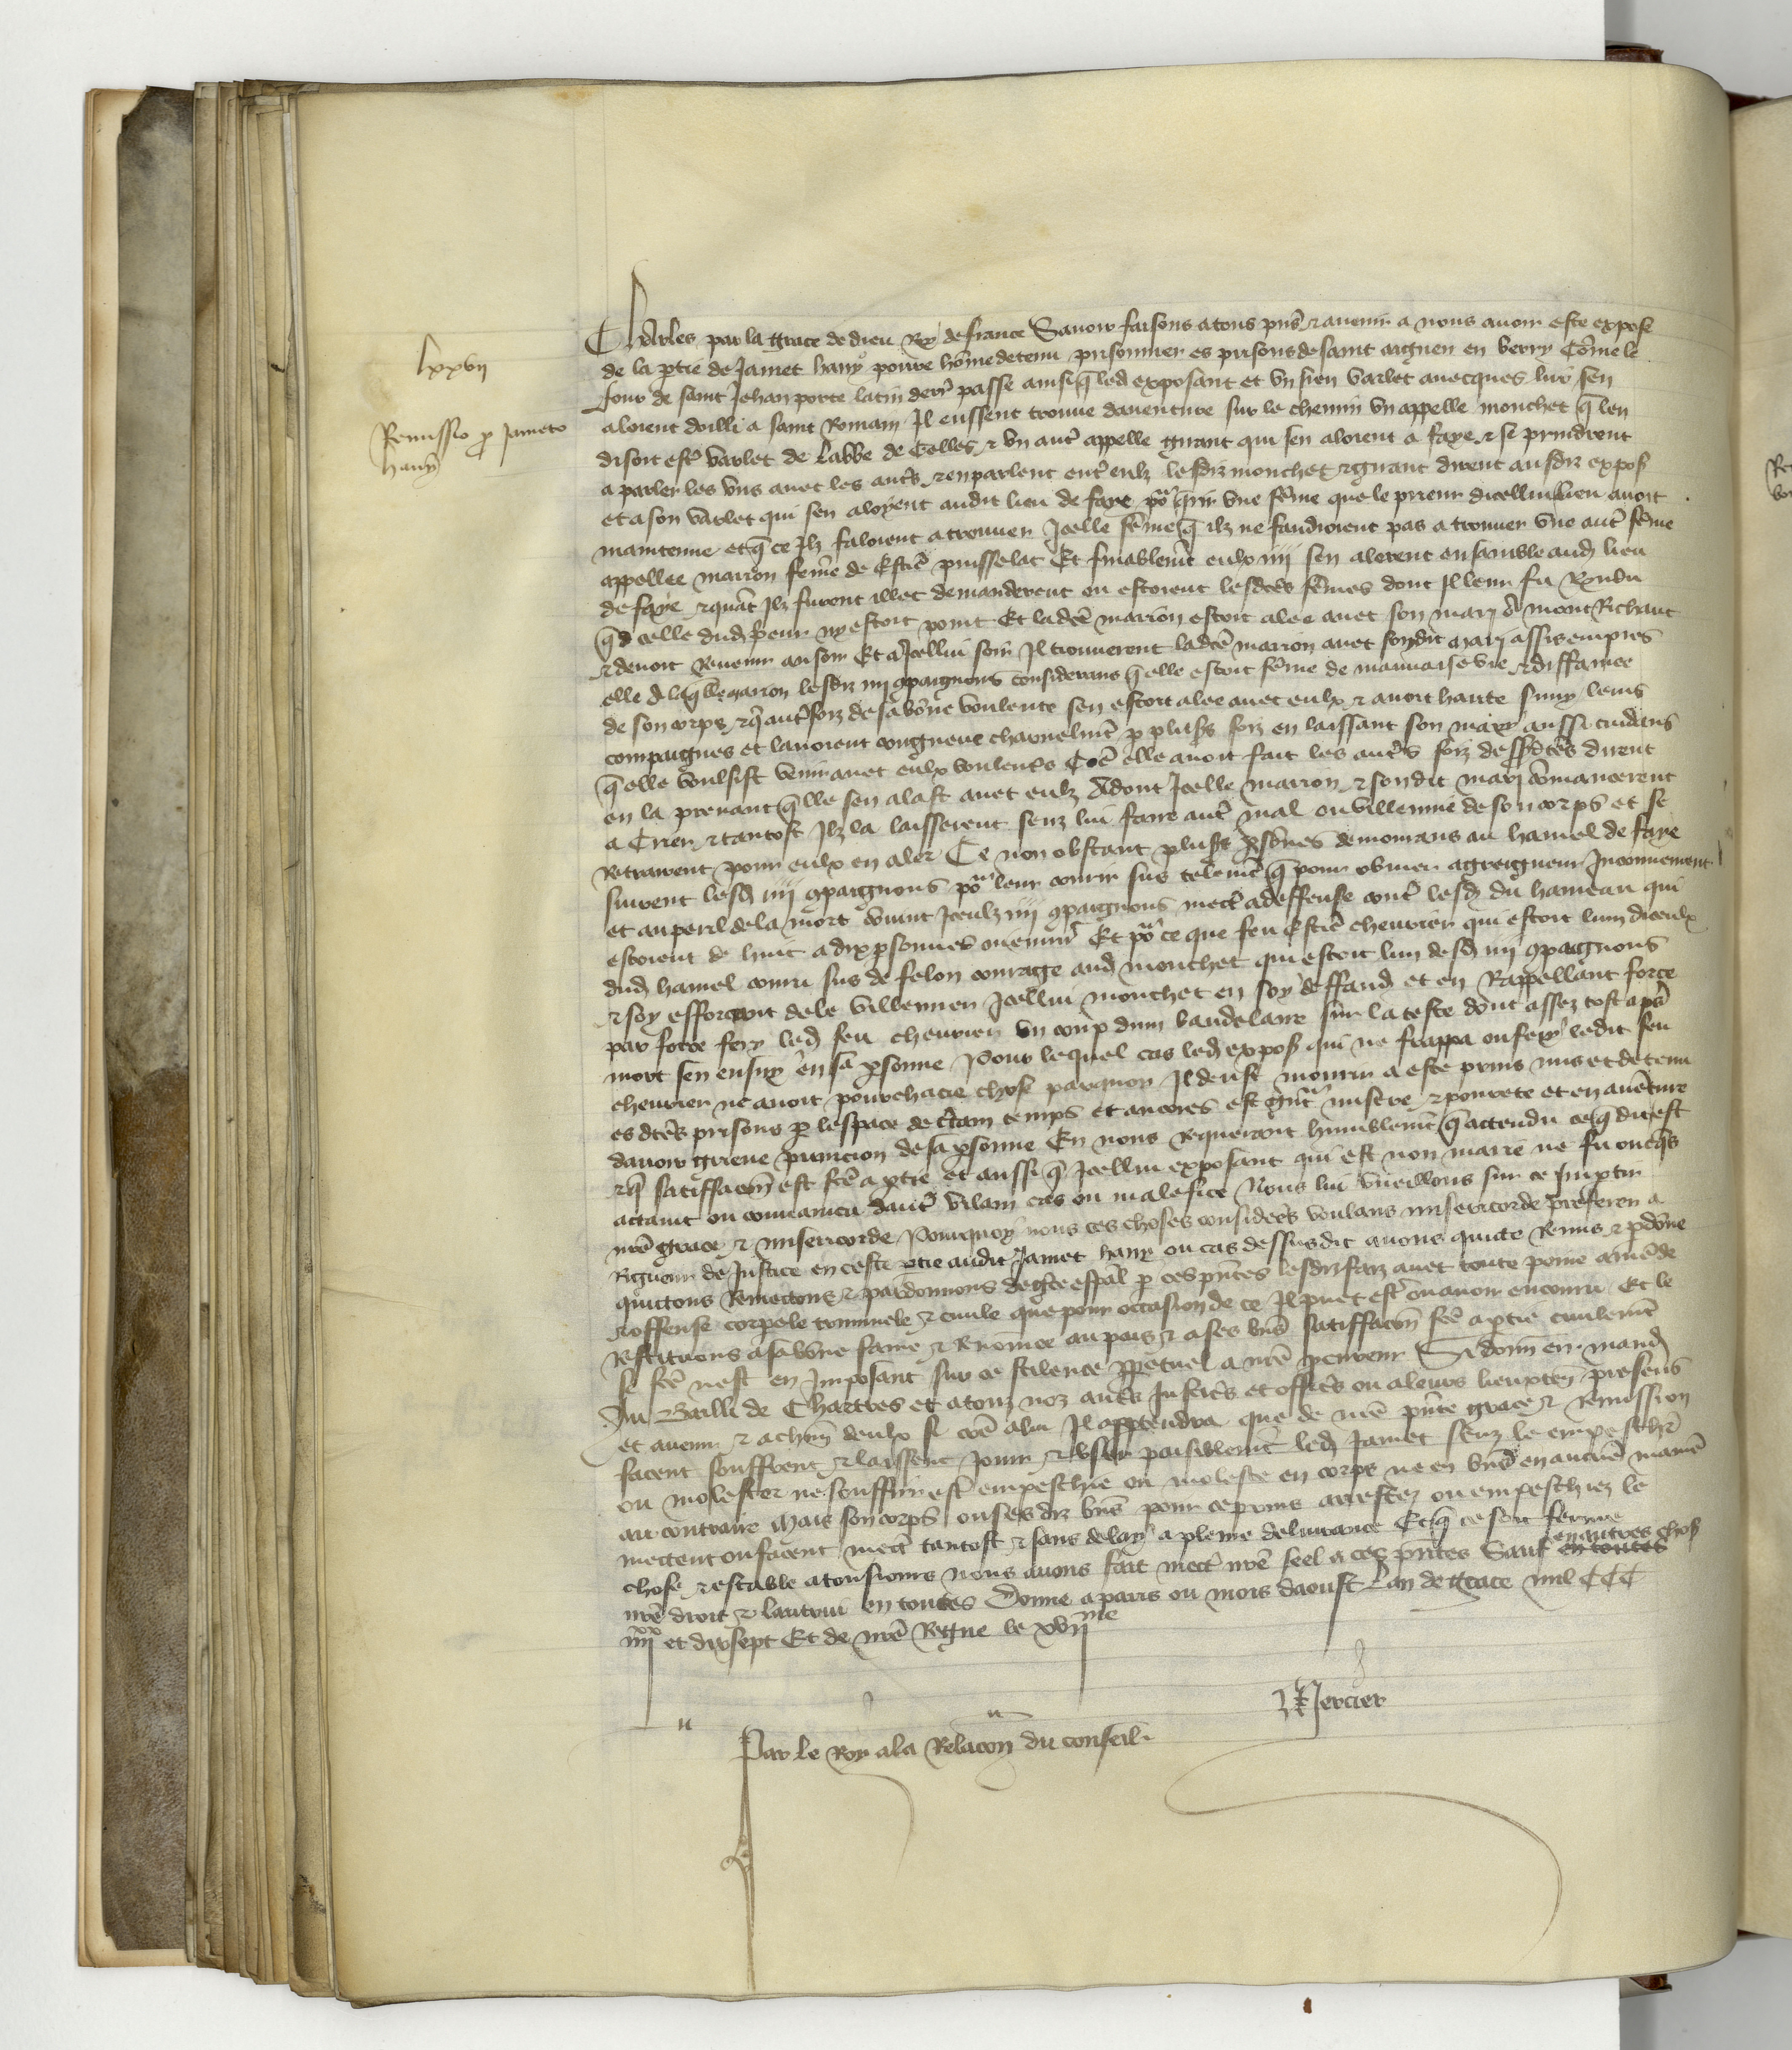 lxxvii
Remissio p Jameto
hany
Charles par la grace de dieu Roy de france Savoir faisons a tous pns et avenir a nous avoir este expose
de la ptie de Jamet hany povre home detenu prisonnier es prisons de saint aignen en berry Come le
Jour de saint Jehan porte latin derr passe ainsi q led exposant et un sien varlet avecques lui sen
aloient doilli a saint Romain Il eussent trouve daventure sur le chemin un appelle mouchet q len
disoit est varlet de labbe de Celles et un aut appelle guiant qui sen aloient a faye et se prindrent
a parler les uns avec les auts et en parlent ent eulz lesdiz mouchet et guiant dirent ausdiz expos
et a son varlet qui sen aloyent audit lieu de faye po qrir une feme que le prieur dicellui lieu avoit
maintenue et q ce Ilz faloient a trouver Icelle feme q ilz ne faudroient pas a trouver une aut feme
appellee marion feme de Estie pusselat Et finablemt eulx iiii sen alerent ensamble aud lieu
de faye et quat Ilz furent illec demanderent ou estoient lesdces femes dont Il leur fu Rendu
q d celle dud prieur ny estoit point Et ladce marion estoit alee avec son mari A mont Richaut
et devoit Revenir au soir Et a Icellui soir Il trouverent ladce marion avec sondit mari assis empres
elle A laqlle marion lesdiz iiii compaignons considerans q elle estoit feme de mauvaise vie et diffamee
de son corps et q autfoiz de sa bone voulente sen estoit alee avec eulx et avoit hante suivy leurs
compaignes et lavoient congneue charnelmt p pluss foiz en laissant son mary aussi cuidans
q elle voulsist venir avec eulx voulents Coe elle avoit fait les auts foiz dessusdces dirent
en la prenant qlle sen alast avec eulz Adont Icelle marion et sondit mari comancerent
a Crier et tantost Ilz la laisserent senz lui faire aut mal ou villennie de son corps et se
Retrairent pour eulx en aler Ce non obstant pluss psones demourans au hamel de faye
suirent lesd iiii compaignons po leur courir sus telemt q pour obvier a greigneur Inconvenient
et au peril de la mort Convint Iceulz iiii compaignons mectre a deffense cont lesd du hameau qui
estoient de huit a dix psonnes ou envir Et po ce que feu Estie chevrier qui estoit lun diceulx
dud hamel couru sus de felon courage aud mouchet qui estoit lun desd iiii compaignons
et soy efforcoit de le villenner Icellui mouchet en soy deffand et en Rappellant force
par force fery led feu chevrier un coup dun baudelaire sur la teste dont assez tost aps
mort sen ensuy en sa psonne Pour lequel cas led expos qui ne frappa ou fery ledit feu
chevrier ne avoit pourchacie chose parquoy Il deust mourir a este prins mis et detenu
es dces prisons p lespace de ctain temps et ancores est a gnt misere et povrete et en aventure
davoir griene punicion de sa psonne En nous Requerant humblemt q attendu ce q dit est
et q satiffacon est fce a ptie et aussi q Icellui exposant qui est non marie ne fu oncqs
actaint ou convaincu daut vilain cas ou malefice Nous lui vueillons sur ce Imptir
nre grace et misericorde Pourquoy nous ces choses consideres voulans misericorde preferer a
Rigueur de Justice en ceste ptie audit Jamet hany ou cas dessusdit avons quicte Remis et pdone
quictons Remectons et pardonnons de gce espal p ces pntes lesdiz faiz avec toute peine amede
et offense corpele criminele et civile que pour occasion de ce Il puet est ou avoir encouru Et le
Restituons a sa bone fame et Renomee au pais et a ses bns satiffacon fce a ptie civilemt
se fce nest en Imposant sur ce silence ppetuel a nre procureur Si donn en mand
Au Bailli de Chartres et a touz noz auts Justics et officrs ou a leurs lieuxten presens
et avenir et a chun deulx si coe a lui Il apptendra que de nre pnte grace et remission
facent souffrent et laissent Joir et user paisiblemt led Jamet senz le empeschr
ou molester ne souffrir est empeschie ou moleste en corps ne en bns en aucue manie
au contraire Mais son corps ou ses diz bns pour ce prins arrestez ou empeschiez le
mectent ou facent mectre tantost et sans delay a pleine delivrance Et q ce soit ferme
chose et estable a tousjours nous avons fait mectre nre seel a ces pntes Sauf en toutes en autres chos
nre droit et lautrui en toutes Donne a paris ou mois daoust Lan de grace mil CCC
iiiixx et dixsept Et de nre Regne le xviime
Par le Roy a la Relacon du conseil
Mercier